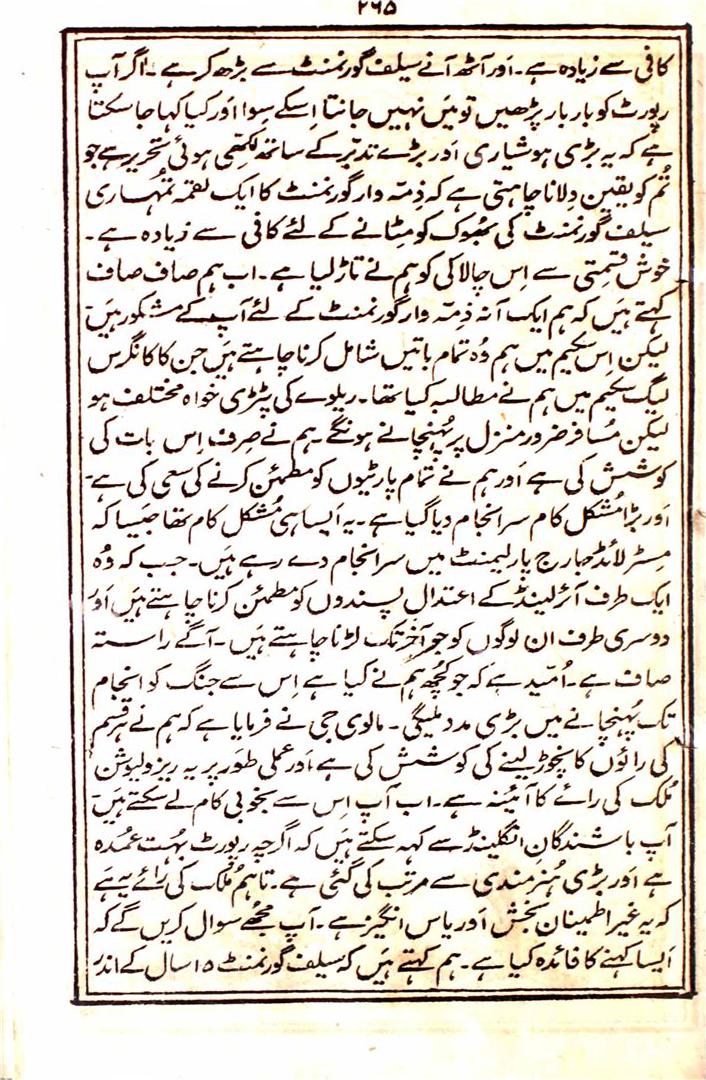 ۲۶۵
کافی سے زیادہ ہے۔ اور آٹھ آنے سیلف گورنمنٹ سے بڑھ کر ہے۔ اگر آپ
رپورٹ کو بار بار پڑھیں تو میں نہیں جانتا اِسکے سِوا اور کیا کہا جا سکتا
ہے کہ یہ بڑی ہوشیاری اور بڑے تدبّر کے ساتھ لکھی ہوئی تحریر ہے جو
تُم کو یقین دِلانا چاہتی ہے کہ ذِمّہ وار گورنمنٹ کا ایک لقمہ تمُہاری
سیلف گورنمنٹ کی بھُوک کو مِٹانے کے لئے کافی سے زیادہ ہے۔
خوش قسمتی سے اِس چالاکی کو ہم نے تاڑ لیا ہے۔ اب ہم صاف صاف
کہتے ہیں کہ ہم ایک آنہ ذِمّہ وار گورنمنٹ کے لئے آپ کے مشکور ہیں
لیکن اِس سکیم میں ہم وُہ تمام باتیں شامل کرنا چاہتے ہیں جن کا کانگرس
لیگ سکیم میں ہم نے مطالبہ کیا تھا۔ ریلوے کی پٹڑی خواہ مختلف ہو
لیکن مُسافر ضرور منزل پر پُہنچانے ہونگے۔ ہم نے صِرف اِس بات کی
کوشش کی ہے اور ہم نے تمام پارٹیوں کو مطمئن کرنے کی سعی کی ہے
اور بڑا مُشکل کام سرانجام دیا گیا ہے۔ یہ ایسا ہی مُشکل کام تھا جیسا کہ
مِسٹر لائڈ جارج پارلیمنٹ میں سرانجام دے رہے ہیں۔ جب کہ وُہ
ایک طرف آئرلینڈ کے اعتدال پسندوں کو مطمئن کرنا چاہتے ہیں اور
دوسری طرف ان لوگوں کو جو آخر تک لڑنا چاہتے ہیں۔ آگے راستہ
صاف ہے۔ اُمّید ہے کہ جو کچُھ ہم نے کیا ہے اِس سے جنگ کو انجام
تک پُہنچانے میں بڑی مدد ملیگی۔ مالوی جی نے فرمایا ہے کہ ہم نے ہر قسم
کی رائوں کا نچوڑ لینے کی کوشش کی ہے اور عملی طور پر یہ ریزولیوشن
مُلک کی رائے کا آئینہ ہے۔ اب آپ اِس سے بخوبی کام لے سکتے ہیں
آپ باشندگانِ انگلینڈ سے کہہ سکتے ہیں کہ اگرچہ رپورٹ بہُت عُمدہ
ہے اور بڑی ہُنرمندی سے مرتب کی گئی ہے۔ تاہم مُلک کی رائے یہ ہے
کہ یہ غیر اطمینان بخش اور یاس انگیز ہے۔ آپ مجُھے سوال کریں گے کہ
ایسا کہنے کا فائدہ کیا ہے۔ ہم کہتے ہیں کہ سیلف گورنمنٹ ۱۵ سال کے اندر